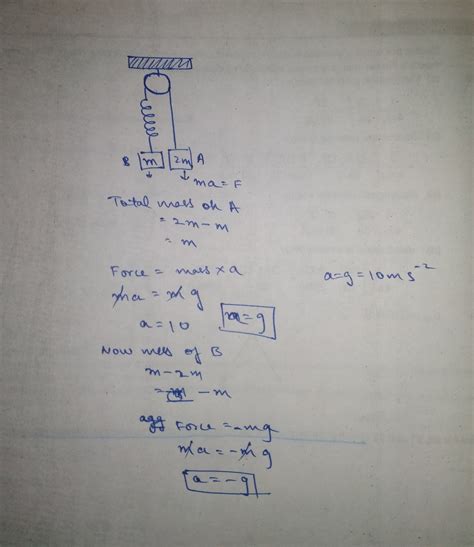 B m 2m A
ma = F
Total mass of A
= 2m - m
= m
Force = mass × a
a=g=10ms⁻²
ma = mg
a = 10
a = g
Now mess of B
m - 2m
= - m
Force = -mg
ma = -mg
a = -g